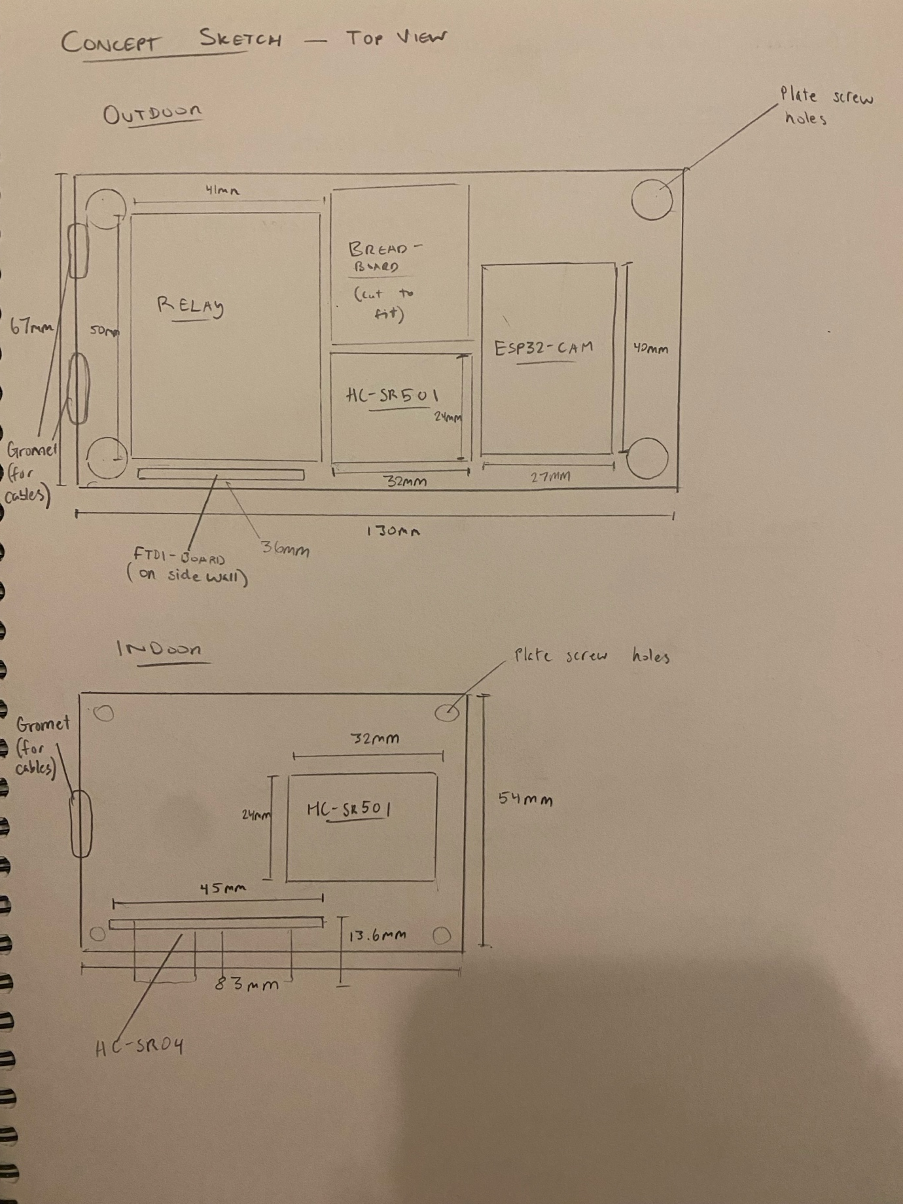 CONCEPT SKETCH — TOP VIEW
OUTDOOR
Plate screw
holes
41mm
BREAD-
BOARD
(cut to
fit)
RELAY
67mm
50mm
ESP32-CAM
40mm
HC-SR501
24mm
Gromet
(for
cables)
32mm
27mm
130mm
36mm
FTDI-BOARD
(on side wall)
INDOOR
Plate screw holes
Gromet
(for
cables)
32mm
24mm
HC-SR501
54mm
45mm
13.6mm
83mm
HC-SR04